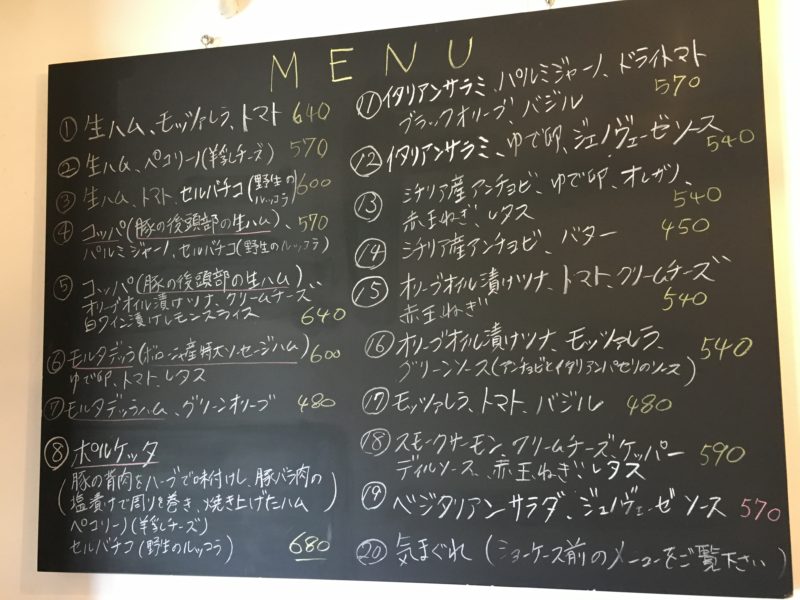 MENU
① 生ハム、モッツァレラ、トマト 640
② 生ハム、ペコリーノ(羊乳チーズ) 570
③ 生ハム、トマト、セルバチコ(野生のルッコラ) 600
④ コッパ(豚の後頭部の生ハム)、570
パルミジャーノ、セルバチコ(野生のルッコラ)
⑤ コッパ(豚の後頭部の生ハム)
オリーブオイル漬けツナ、クリームチーズ
白ワイン漬けレモンスライス 640
⑥ モルタデッラ(ボローニャ産特大ソーセージハム) 600
ゆで卵、トマト、レタス
⑦ モルタデッラハム、グリーンオリーブ 480
⑧ ポルケッタ
(豚の背肉をハーブで味付けし、豚バラ肉の
塩漬けで周りを巻き、焼き上げたハム)
ペコリーノ(羊乳チーズ)
セルバチコ(野生のルッコラ) 680
⑪ イタリアンサラミ、パルミジャーノ、ドライトマト
ブラックオリーブ、バジル 570
⑫ イタリアンサラミ、ゆで卵、ジェノヴェーゼソース 540
⑬ シチリア産アンチョビ、ゆで卵、オレガノ、
赤玉ねぎ、レタス 540
⑭ シチリア産アンチョビ、バター 450
⑮ オリーブオイル漬けツナ、トマト、クリームチーズ
赤玉ねぎ 540
⑯ オリーブオイル漬けツナ、モッツァレラ、 540
グリーンソース(アンチョビとイタリアンパセリのソース)
⑰ モッツァレラ、トマト、バジル 480
⑱ スモークサーモン、クリームチーズ、ケッパー
ディルソース、赤玉ねぎ、レタス 590
⑲ ベジタリアンサラダ、ジェノヴェーゼソース 570
⑳ 気まぐれ (ショーケース前のメニューをご覧下さい)